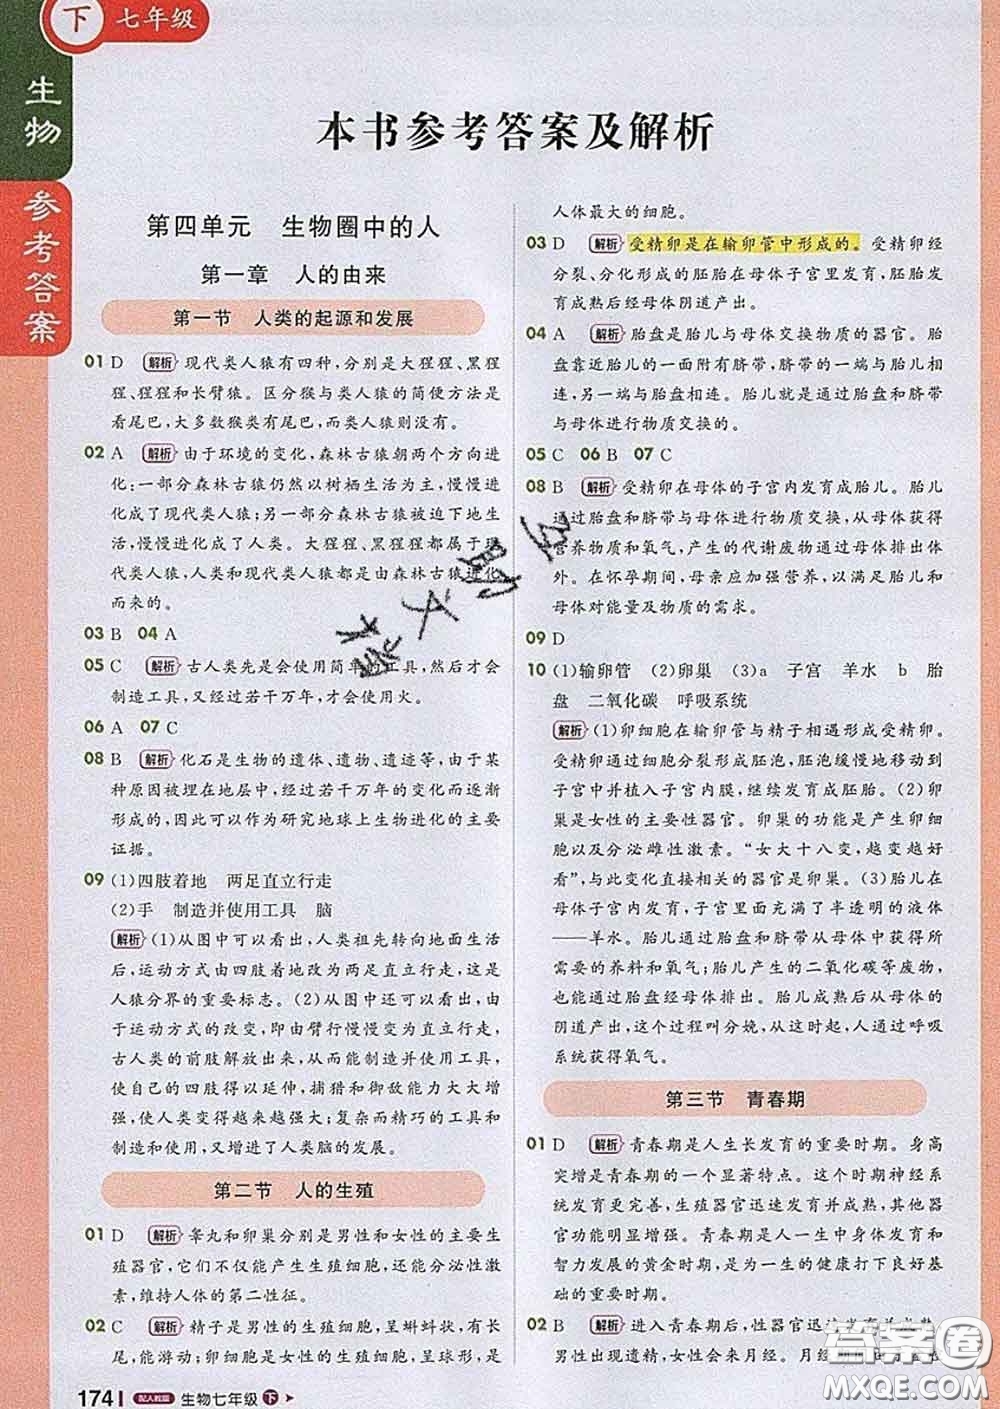 下 七年级
生物
参考答案
本书参考答案及解析
第四单元 生物圈中的人
第一章 人的由来
第一节 人类的起源和发展
01 D 解析 现代类人猿有四种,分别是大猩猩、黑猩
猩、猩猩和长臂猿。区分猴与类人猿的简便方法是
看尾巴,大多数猴类有尾巴,而类人猿则没有。
02 A 解析 由于环境的变化,森林古猿朝两个方向进
化:一部分森林古猿仍然以树栖生活为主,慢慢进
化成了现代类人猿;另一部分森林古猿被迫下地生
活,慢慢进化成了人类。大猩猩、黑猩猩都属于现
代类人猿,人类和现代类人猿都是由森林古猿进化
而来的。
03 B 04 A
05 C 解析 古人类先是会使用简单的工具,然后才会
制造工具,又经过若干万年,才使用火。
06 A 07 C
08 B 解析 化石是生物的遗体、遗物、遗迹等,由于某
种原因被埋在地层中,经过若干万年的变化而逐渐
形成的,因此可以作为研究地球上生物进化的主要
证据。
09 (1)四肢着地 两足直立行走
(2)手 制造并使用工具 脑
解析 (1)从图中可以看出,人类祖先转向地面生活
后,运动方式由四肢着地改为两足直立行走,这是
人猿分界的重要标志。(2)从图中还可以看出,由
于运动方式的改变,即由臂行慢慢变为直立行走,
古人类的前肢解放出来,从而能制造并使用工具,
使自己的四肢得以延伸,捕猎和御敌能力大大增
强,使人类变得越来越强大;复杂而精巧的工具和
武器,又增进了人类脑的发展。
第二节 人的生殖
01 D 解析 睾丸和卵巢分别是男性和女性的主要生
殖器官,它们不仅能产生生殖细胞,还能分泌性激
素,维持人体的第二性征。
02 C 解析 精子是男性的生殖细胞,呈蝌蚪状,有长
尾,能游动;卵细胞是女性的生殖细胞,呈球形,是
人体最大的细胞。
03 D 解析 受精卵是在输卵管中形成的。受精卵经
分裂、分化形成的胚胎在母体子宫里发育,胚胎发
育成熟后经母体阴道产出。
04 A 解析 胎盘是胎儿与母体交换物质的器官。胎
盘靠近胎儿的一面附有脐带,脐带的一端与胎儿相
连,另一端与胎盘相连。胎儿就是通过胎盘和脐带
与母体进行物质交换的。
05 C 06 B 07 C
08 B 解析 受精卵在母体的子宫内发育成胎儿。胎儿
通过胎盘和脐带与母体进行物质交换,从母体获得
营养物质和氧气,产生的代谢废物通过母体排出体
外。在怀孕期间,母亲应加强营养,以满足胎儿和
母体对能量及物质的需求。
09 D
10 (1)输卵管 (2)卵巢 (3)a 子宫 羊水 b 胎
盘 二氧化碳 呼吸系统
解析 (1)卵细胞在输卵管与精子相遇形成受精卵。
受精卵通过细胞分裂形成胚泡,胚泡缓慢地移动到
子宫中并植入子宫内膜,继续发育成胚胎。(2)卵
巢是女性的主要性器官。卵巢的功能是产生卵细
胞以及分泌雌性激素。“女大十八变,越变越好
看”,与此变化直接相关的器官是卵巢。(3)胎儿在
母体子宫内发育,子宫里面充满了半透明的液体
——羊水。胎儿通过胎盘和脐带从母体中获得所
需要的养料和氧气;胎儿产生的二氧化碳等废物,
也是通过胎盘经母体排出。胎儿成熟后从母体的
阴道产出,这个过程叫分娩,从这时起,人通过呼吸
系统获得氧气。
第三节 青春期
01 D 解析 青春期是人生长发育的重要时期。身高
突增是青春期的一个显著特点。这个时期神经系
统发育更完善,生殖器官迅速发育并成熟,其他内
脏功能增强。青春期是人一生中身体发育和
智力发展的黄金时期,是为一生的健康打下良好基
础的重要时期。
02 B 解析 进入青春期后,性器官迅速发育
男性出现遗精,女性会来月经。月经
174 配人教版 生物七年级 下
答案圈
MXQE.COM